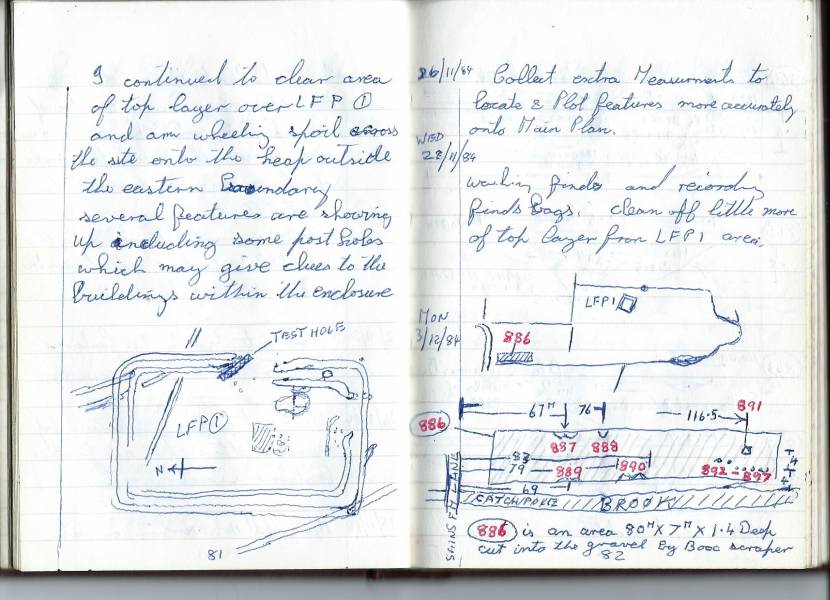 I continued to clear area
of top layer over LFP ①
and am wheeling spoil across
the site onto the heap outside
the eastern Boundary
several features are showing
up including some post holes
which may give clues to the
buildings within the enclosure
TEST HOLE
LFP ①
N
81
26/11/84 Collect extra Measurments to
locate & Plot features more accurately
onto Main Plan.
WED
28/11/84
washing finds and recording
finds bags. clean off little more
of top layer from LFP1 area.
LFP1
MON
3/12/84
886
67ᴹ 76 116.5 891
886
887 888
83
79 889 890 892-897
69
4
4
CATCHPOLE BROOK
LANE
886 is an area 80ᴹ X 7ᴹ X 1.4 Deep
cut into the gravel By Box scraper
82